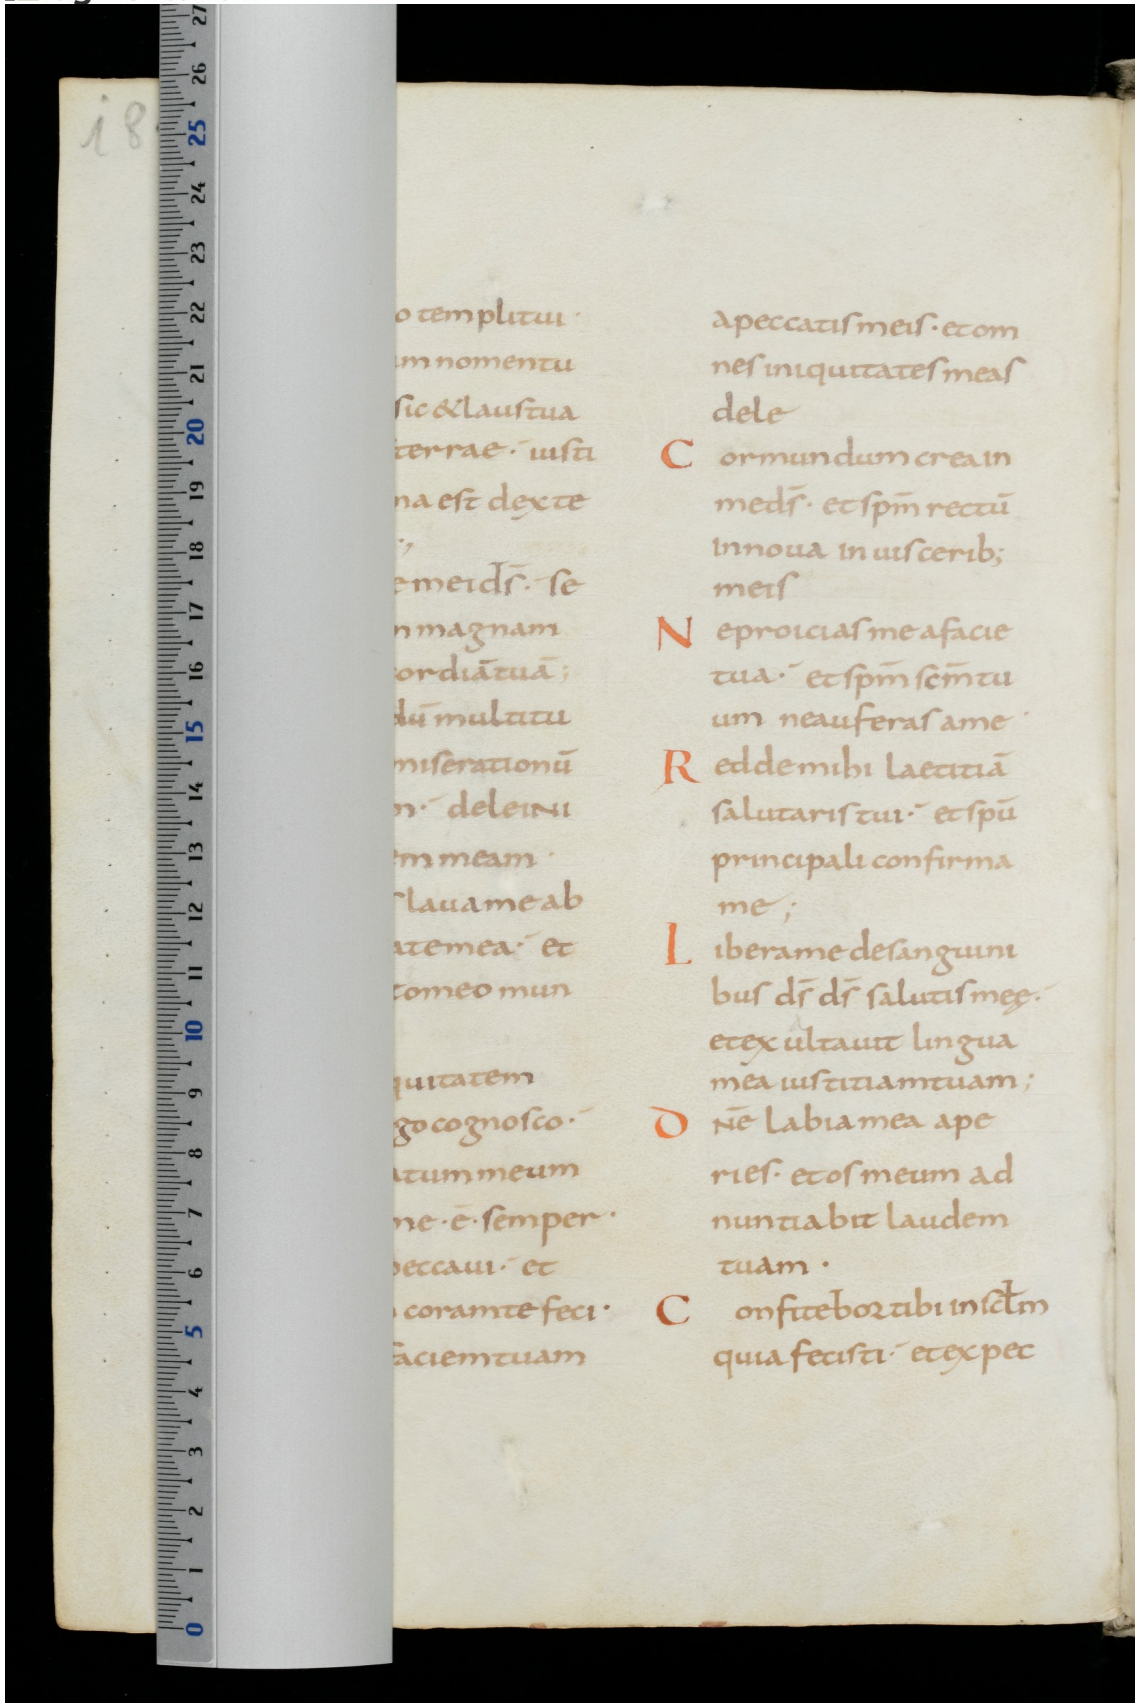 18
o templi tui·
m nomen tu
sic & laus tua
terrae· iusti
na est dexte
e mei dš· se
n magnam
cordiā tuā;
dū multitu
miserationū
m· dele ini
em meam·
lava me ab
ate mea· et
to meo mun
quitatem
go cognosco·
atum meum
me·ē·semper·
peccaui· et
coram te feci·
faciem tuam
a peccatis meis· et om
nes iniquitates meas
dele
Cor mundum crea in
me dš· et spm̄ rectū
innoua in uiscerib;
meis
Ne proicias me a facie
tua· et spm̄ scm̄ tu
um ne auferas a me
Redde mihi laetitiā
salutaris tui· et spū
principali confirma
me;
Libera me de sanguini
bus dš dš salutis meę·
et exultauit lingua
mea iustitiam tuam;
Dnē labia mea ape
ries· et os meum ad
nuntiabit laudem
tuam·
Confitebor tibi in scłm
quia fecisti· et expec
27
26
25
24
23
22
21
20
19
18
17
16
15
14
13
12
11
10
9
8
7
6
5
4
3
2
1
0